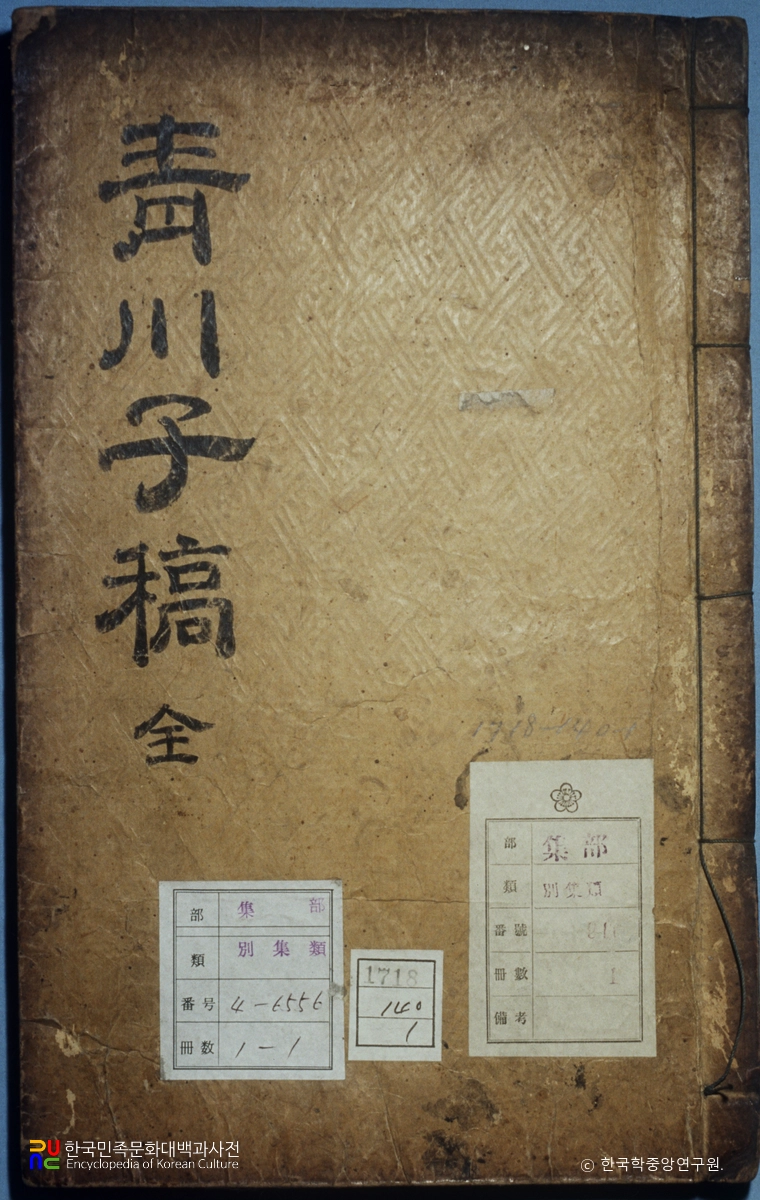 青川子稿 全
1718-140-1
部 集部
類 別集類
番號
冊數 1
備考
部 集部
類 別集類
番号 4-6556
冊数 1-1
1718
140
1
한국민족문화대백과사전
Encyclopedia of Korean Culture
© 한국학중앙연구원.